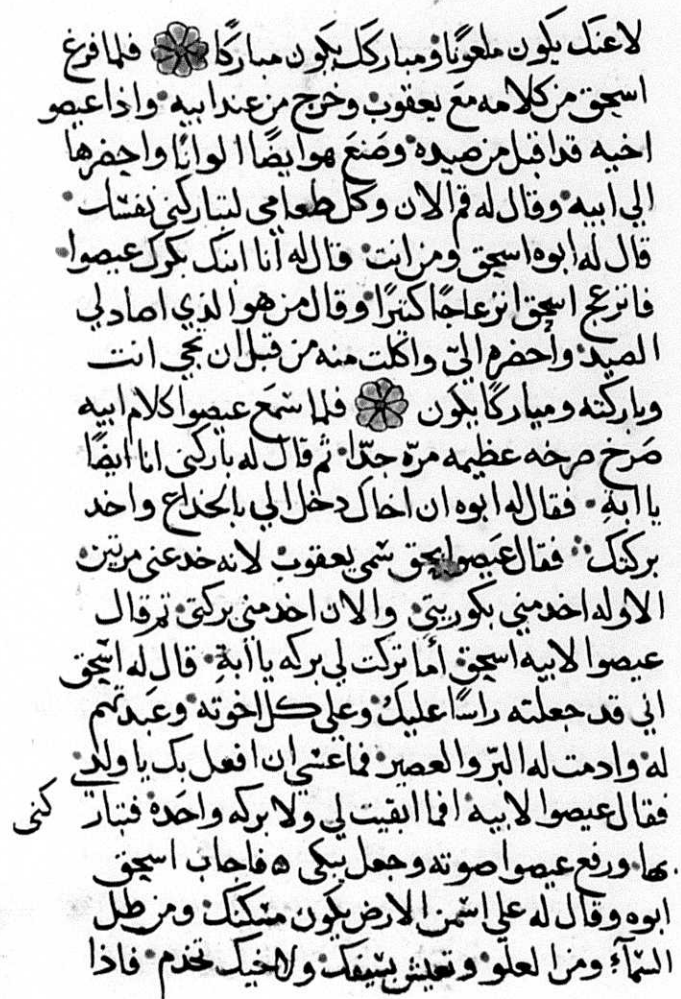 لاعنك يكون ملعونًا ومباركك يكون مباركًا فلما فرغ
اسحق من كلامه مع يعقوب وخرج من عند ابيه واذا عيصو
اخيه قد اقبل من صيده وصنع هو ايضًا الوانًا واحضرها
الي ابيه وقال له قم الان وكل طعامي لتباركني نفسك
قال له ابوه اسحق ومن انت قال له أنا ابنك بكرك عيصوا
فانزعج اسحق انزعاجًا كثيرًا وقال من هو الذي اصاد لي
الصيد وأحضره اليّ واكلت منه من قبل ان تجي انت
وباركته ومباركًا يكون فلما سمع عيصوا كلام ابيه
صرخ صرخه عظيمه مرّه جدّا ثم قال له باركني انا ايضًا
يا ابهِ فقال له ابوه ان اخاك دخل الي بالخداع واخد
بركتك فقال عيصوا بحق سمي يعقوب لانه خدعني مرتين
الاوله اخد مني بكوريتي والان اخد مني بركتي تم قال
عيصوا لابيه اسحق أما تركت لي بركه يا ابةِ قال له اسحق
اني قد جعلته راسًا عليك وعلي كل اخوته وعبدتهم
له وادمت له البرّ والعصير فما عسي ان افعل بك يا ولدي
فقال عيصوا لابيه افما ابقيت لي ولا بركه واحدة فتبار كني
بها ورفع عيصوا صوته وجعل يبكي ه فاجاب اسحق
ابوه وقال له علي اسمن الارض يكون مسكنك ومن طل
السمآءِ ومن العلو وتعيش بسيفك ولاخيك تخدم فاذا